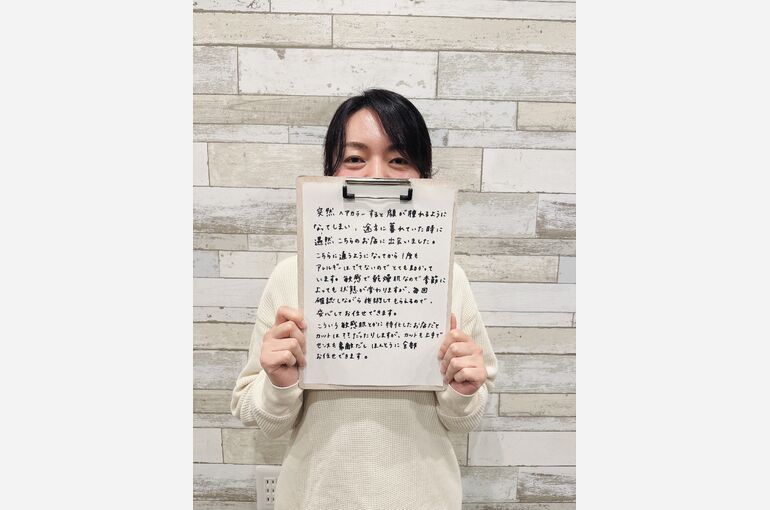 突然、ヘアカラーすると顔が腫れるように
なってしまい、途方に暮れていた時に
偶然、こちらのお店に出会いました。
こちらに通うようになってから1度も
アレルギーはでてないのでとても助かって
います。敏感で乾燥肌なので季節に
よっても状態が変わりますが、毎回
確認しながら施術してもらえるので、
安心してお任せできます。
こういう敏感肌とかに特化したお店だと
カットは??だったりしますが、カットも上手で
センスも素敵だし ほんとうに全部
お任せできます。